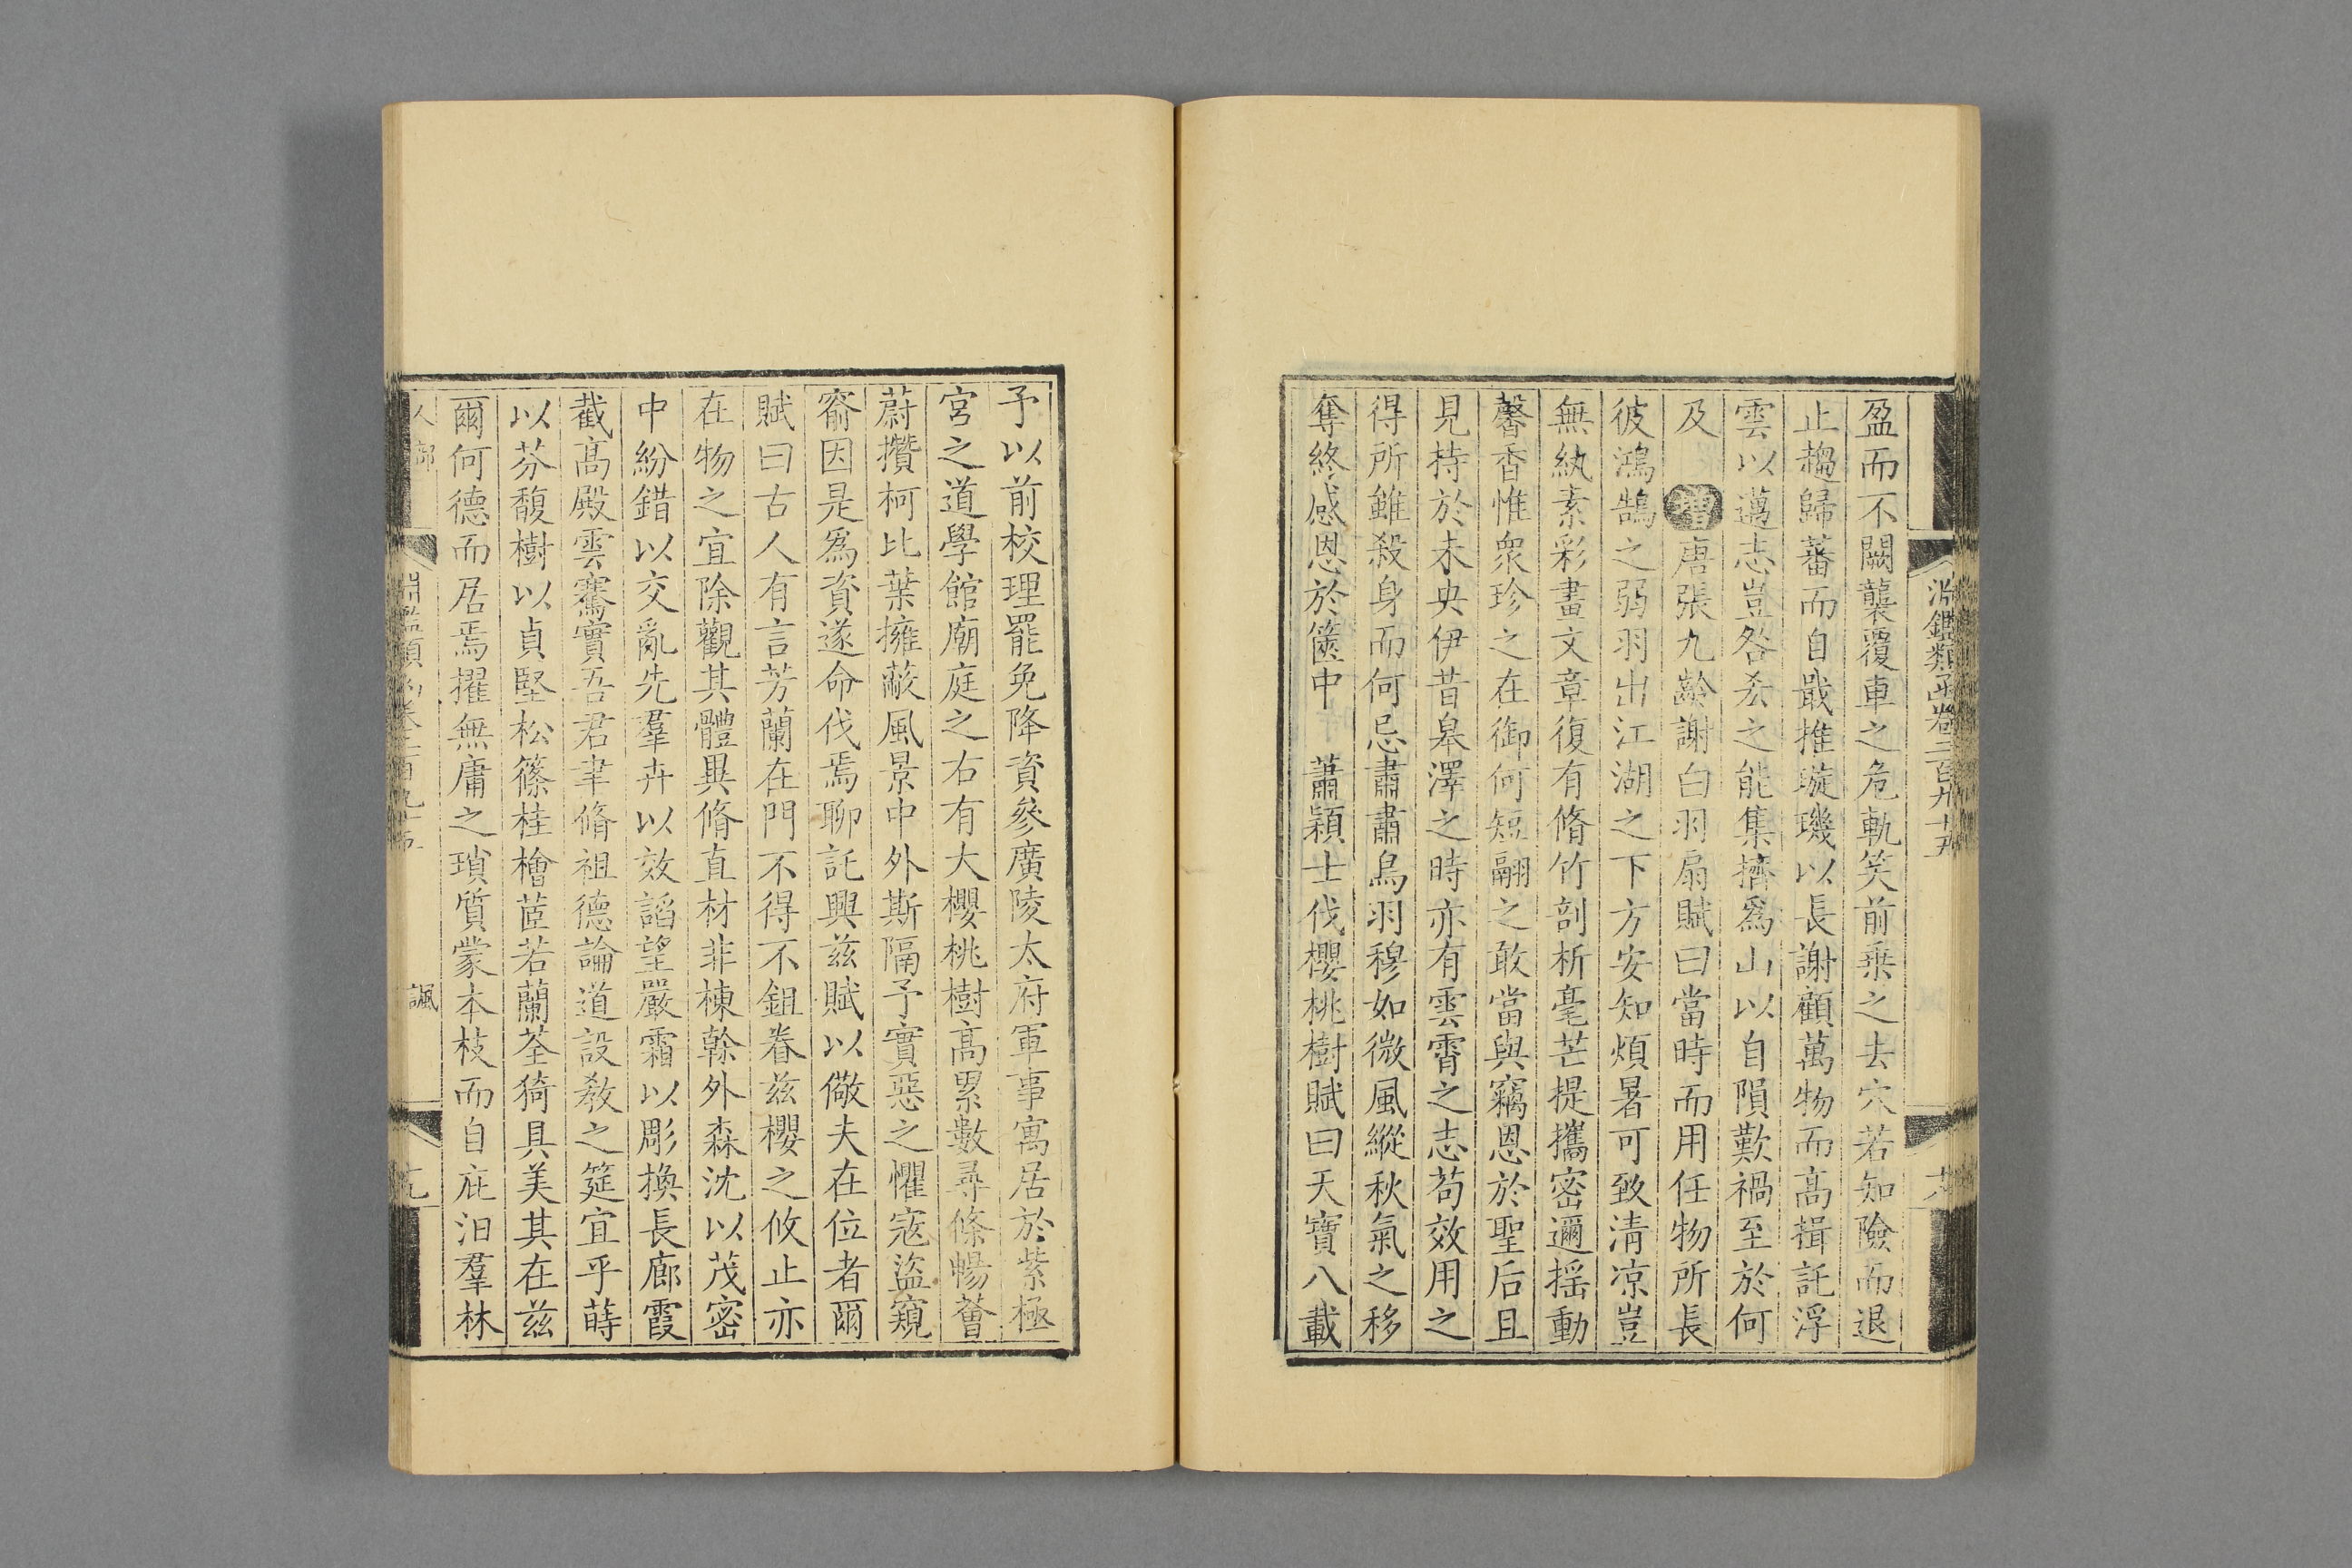 淵鑑類函卷二百九十五
盈而不闕襲覆車之危軌笑前乗之去穴若知險而退
止趨歸蕃而自戢推璇璣以長謝顧萬物而高揖託浮
雲以邁志豈咎㳒之能集擠爲山以自隕歎禍至於何
及 增唐張九齡謝白羽扇賦曰當時而用任物所長
彼鴻鵠之弱羽出江湖之下方安知煩暑可致清凉豈
無紈素彩畫文章復有脩竹剖析毫芒提攜密邇揺動
馨香惟衆珍之在御何短翮之敢當與竊恩於聖后且
見持於未央伊昔皋澤之時亦有雲霄之志苟效用之
得所雖殺身而何忌肅肅鳥羽穆如微風縱秋氣之移
奪終感恩於篋中 蕭穎士伐櫻桃樹賦曰天寶八載
予以前校理罷免降資參廣陵太府軍事寓居於紫極
宮之道學館廟庭之右有大櫻桃樹高累數尋條暢薈
蔚攢柯比葉擁蔽風景中外斯隔予實惡之懼寇盜窺
窬因是爲資遂命伐焉聊託興茲賦以儆夫在位者爾
賦曰古人有言芳蘭在門不得不鉏眷茲櫻之攸止亦
在物之宜除觀其體異脩直材非棟榦外森沈以茂密
中紛錯以交亂先羣卉以效諂望嚴霜以彫換長廊霞
截高殿雲騫實吾君聿脩祖德論道設教之筵宜乎蒔
以芬馥樹以貞堅松篠桂檜茝若蘭荃猗具美其在茲
爾何德而居焉擢無庸之瑣質蒙本枝而自庇汨羣林
人部
諷